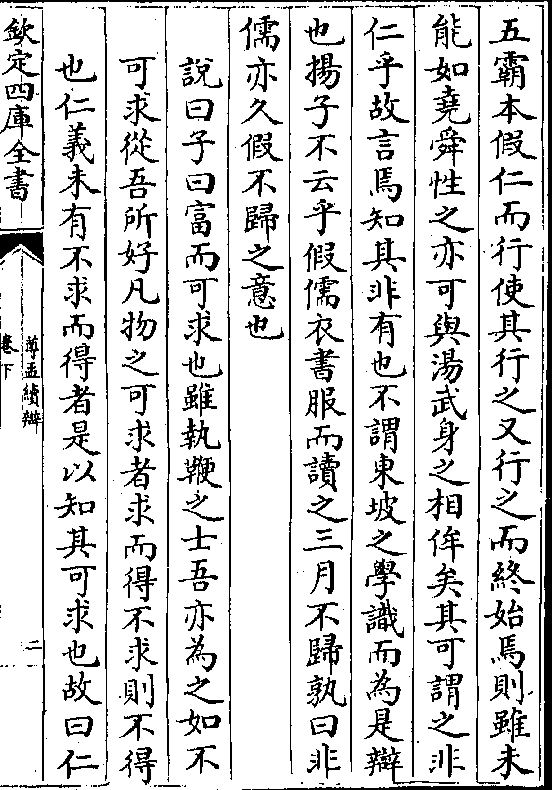 五霸本假仁而行使其行之又行之而終始焉則雖未
能如堯舜性之亦可與湯武身之相侔矣其可謂之非
仁乎故言焉知其非有也不謂東坡之學識而為是辯
也揚子不云乎假儒衣書服而讀之三月不歸孰曰非
儒亦久假不歸之意也
說曰子曰富而可求也雖執鞭之士吾亦為之如不
可求從吾所好凡物之可求者求而得不求則不得
也仁義未有不求而得者是以知其可求也故曰仁
欽定四庫全書
尊孟續辯
卷下
二